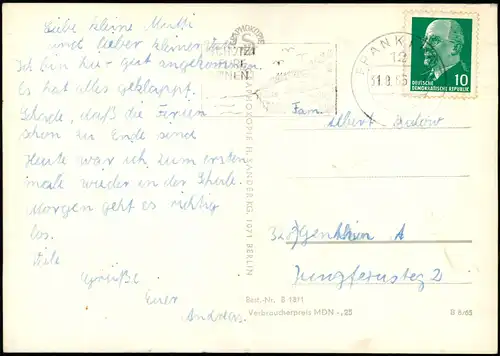 Liebe kleine Mutti
und lieber kleiner
Ich bin hu-gut angekommen.
Es hat alles geklappt.
Schade, daß die Ferien
schon zu Ende sind
Heute war ich zum ersten
male wieder in der Schule.
Morgen geht es richtig
los.
Viele
Grüße
Euer
Andreas.
FRANKF
12
31.8.65
10
DEUTSCHE
DEMOKRATISCHE REPUBLIK
Fam.
Albert
Genthin A
Jungfernsteg 2
H. SANDER KG. 1071 BERLIN
Best.-Nr. B 1811
Verbraucherpreis MDN -,25
D 6/65